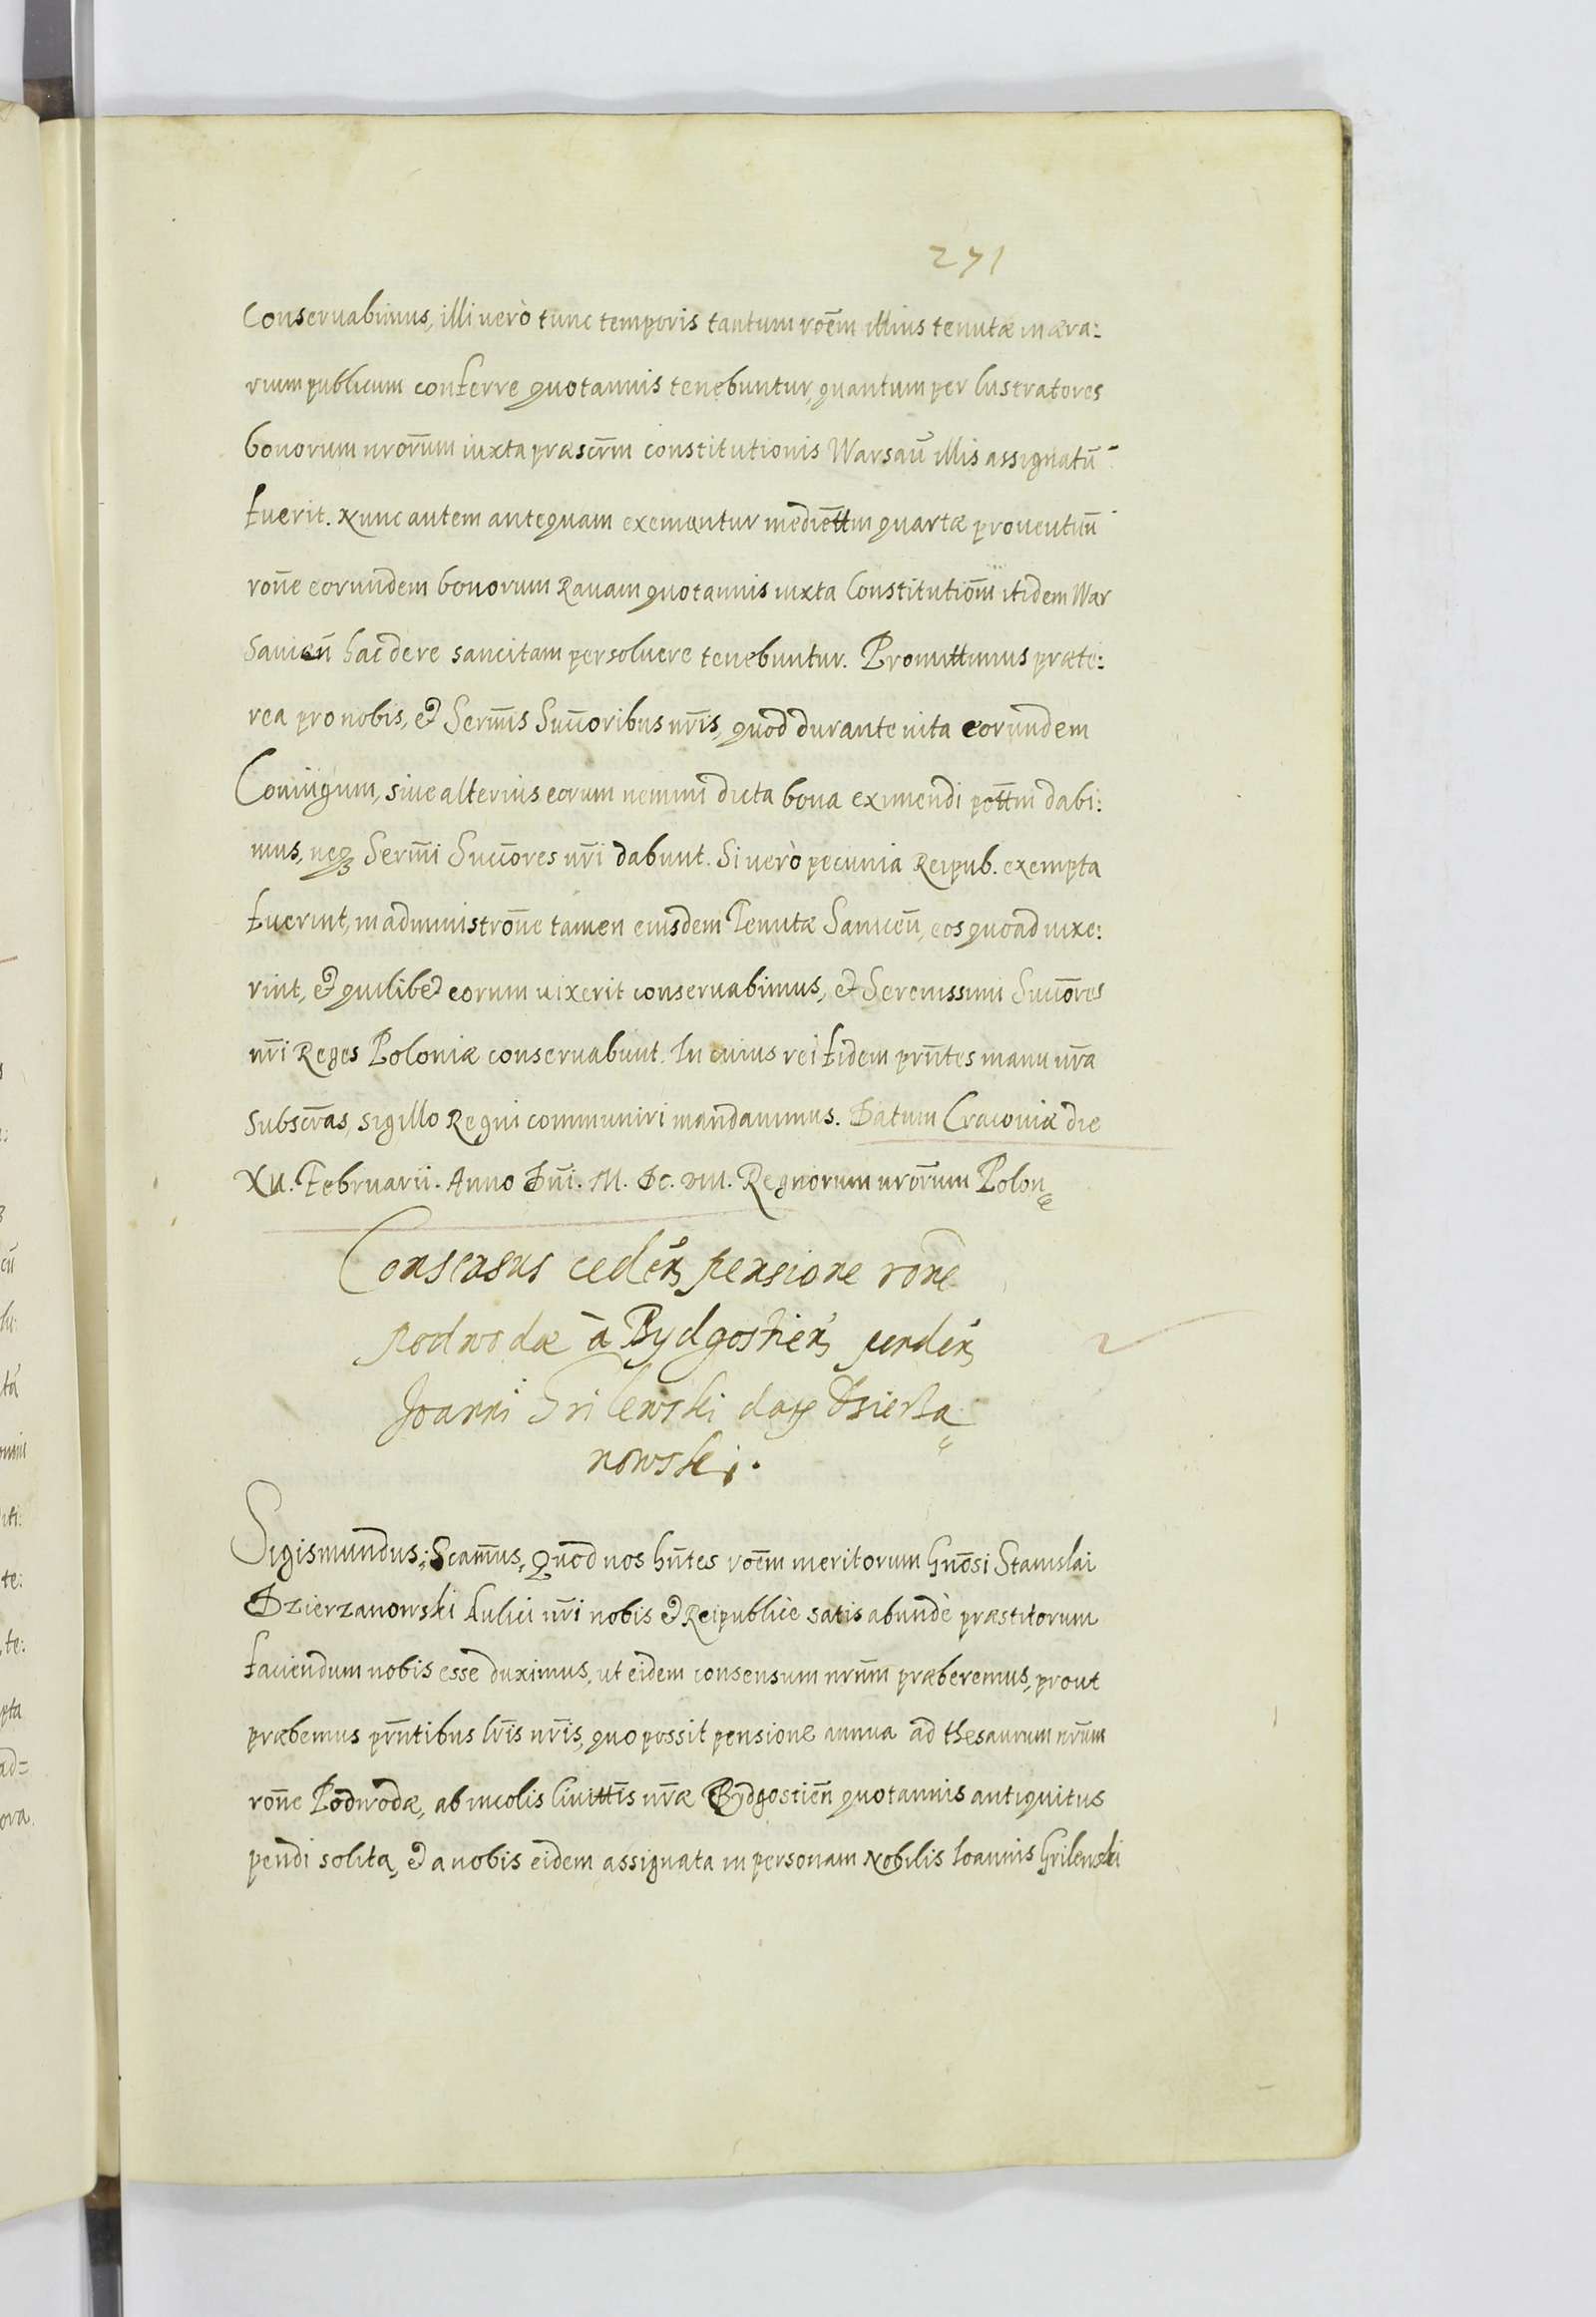 271
Conservabimus, illi verò tunc temporis tantum rõem illius tenutæ in æra:
rium publicum conferre quotannis tenebuntur, quantum per lustratores
bonorum nrõrum iuxta præscr̃m constitutionis Warsaũ illis assignatũ
fuerit. Nunc autem antequam exemantur mediet̃tm quartæ proventuũ
rõne eorundem bonorum Ravam quotannis iuxta Constitutiõm itidem War
saviẽn hac de re sancitam persolvere tenebuntur. Promittimus præte:
rea pro nobis, et Serm̃is Succ̃oribus nr̃is, quod durante vita eorundem
Coniugum, sive alterius eorum nemini dicta bona eximendi pot̃tm dabi:
mus, neq; Serm̃i Succ̃ores nr̃i dabunt. Si verò pecunia Reipub. exempta
fuerint, in administrõne tamen eiusdem Tenutæ Saniceñ, eos quoad vixe:
rint, et quilibet eorum vixerit conservabimus, et Serenissimi Succ̃ores
nr̃i Reges Poloniæ conservabunt. In cuius rei fidem prñtes manu nr̃a
subscr̃as, sigillo Regni communiri mandavimus. Datum Cracoviæ die
XV. Februarii. Anno Dñi. M. DC. VIII. Regnorum nrõrum Polon
Consensus cedeñ pensione rõne
podwodæ à Bydgostień pendeń
Joanni Grilewski datg Dzierża
nowski.
Sigismundus; Scam̃us, Quod nos hñtes rõem meritorum Gñosi Stanislai
Dzierzanowski Aulici nr̃i nobis et Reipublice satis abundè præstitorum
faciendum nobis esse duximus, ut eidem consensum nr̃um præberemus, prout
præbemus prñtibus lr̃is nr̃is, quo possit pensione annua ad thesaurum nr̃um
rõne Podwodæ, ab incolis Civitt̃is nr̃æ Bydgostieñ quotannis antiquitus
pendi solita, et a nobis eidem assignata in personam Nobilis Ioannis Grilewski